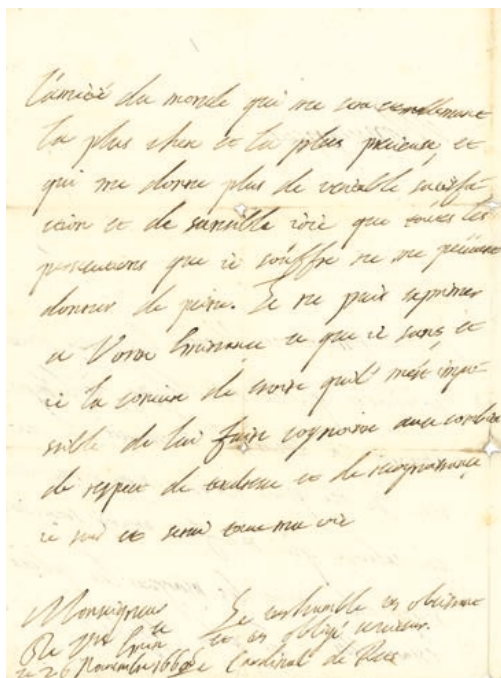 l'amitié du monde qui me sera eternellement
la plus chere et la plus precieuse, et
qui me donne plus de veritable satisfa-
ction et de sensible ioie que toutes les
persecutions que ie souffre ne me peuvent
donner de peine. Ie ne puis exprimer
a Vostre Eminence ce que ie sens, et
ie la coniure de croire qu'il m'est impo-
ssible de lui faire cognoistre avec combien
de respect de tendresse et de recognoissance
ie suis et serai toute ma vie
Monseigneur
De Vre Emin
Le tres humble tres obeissant
et tres obligé serviteur.
ce 26 Novembre
Le Cardinal de Retz